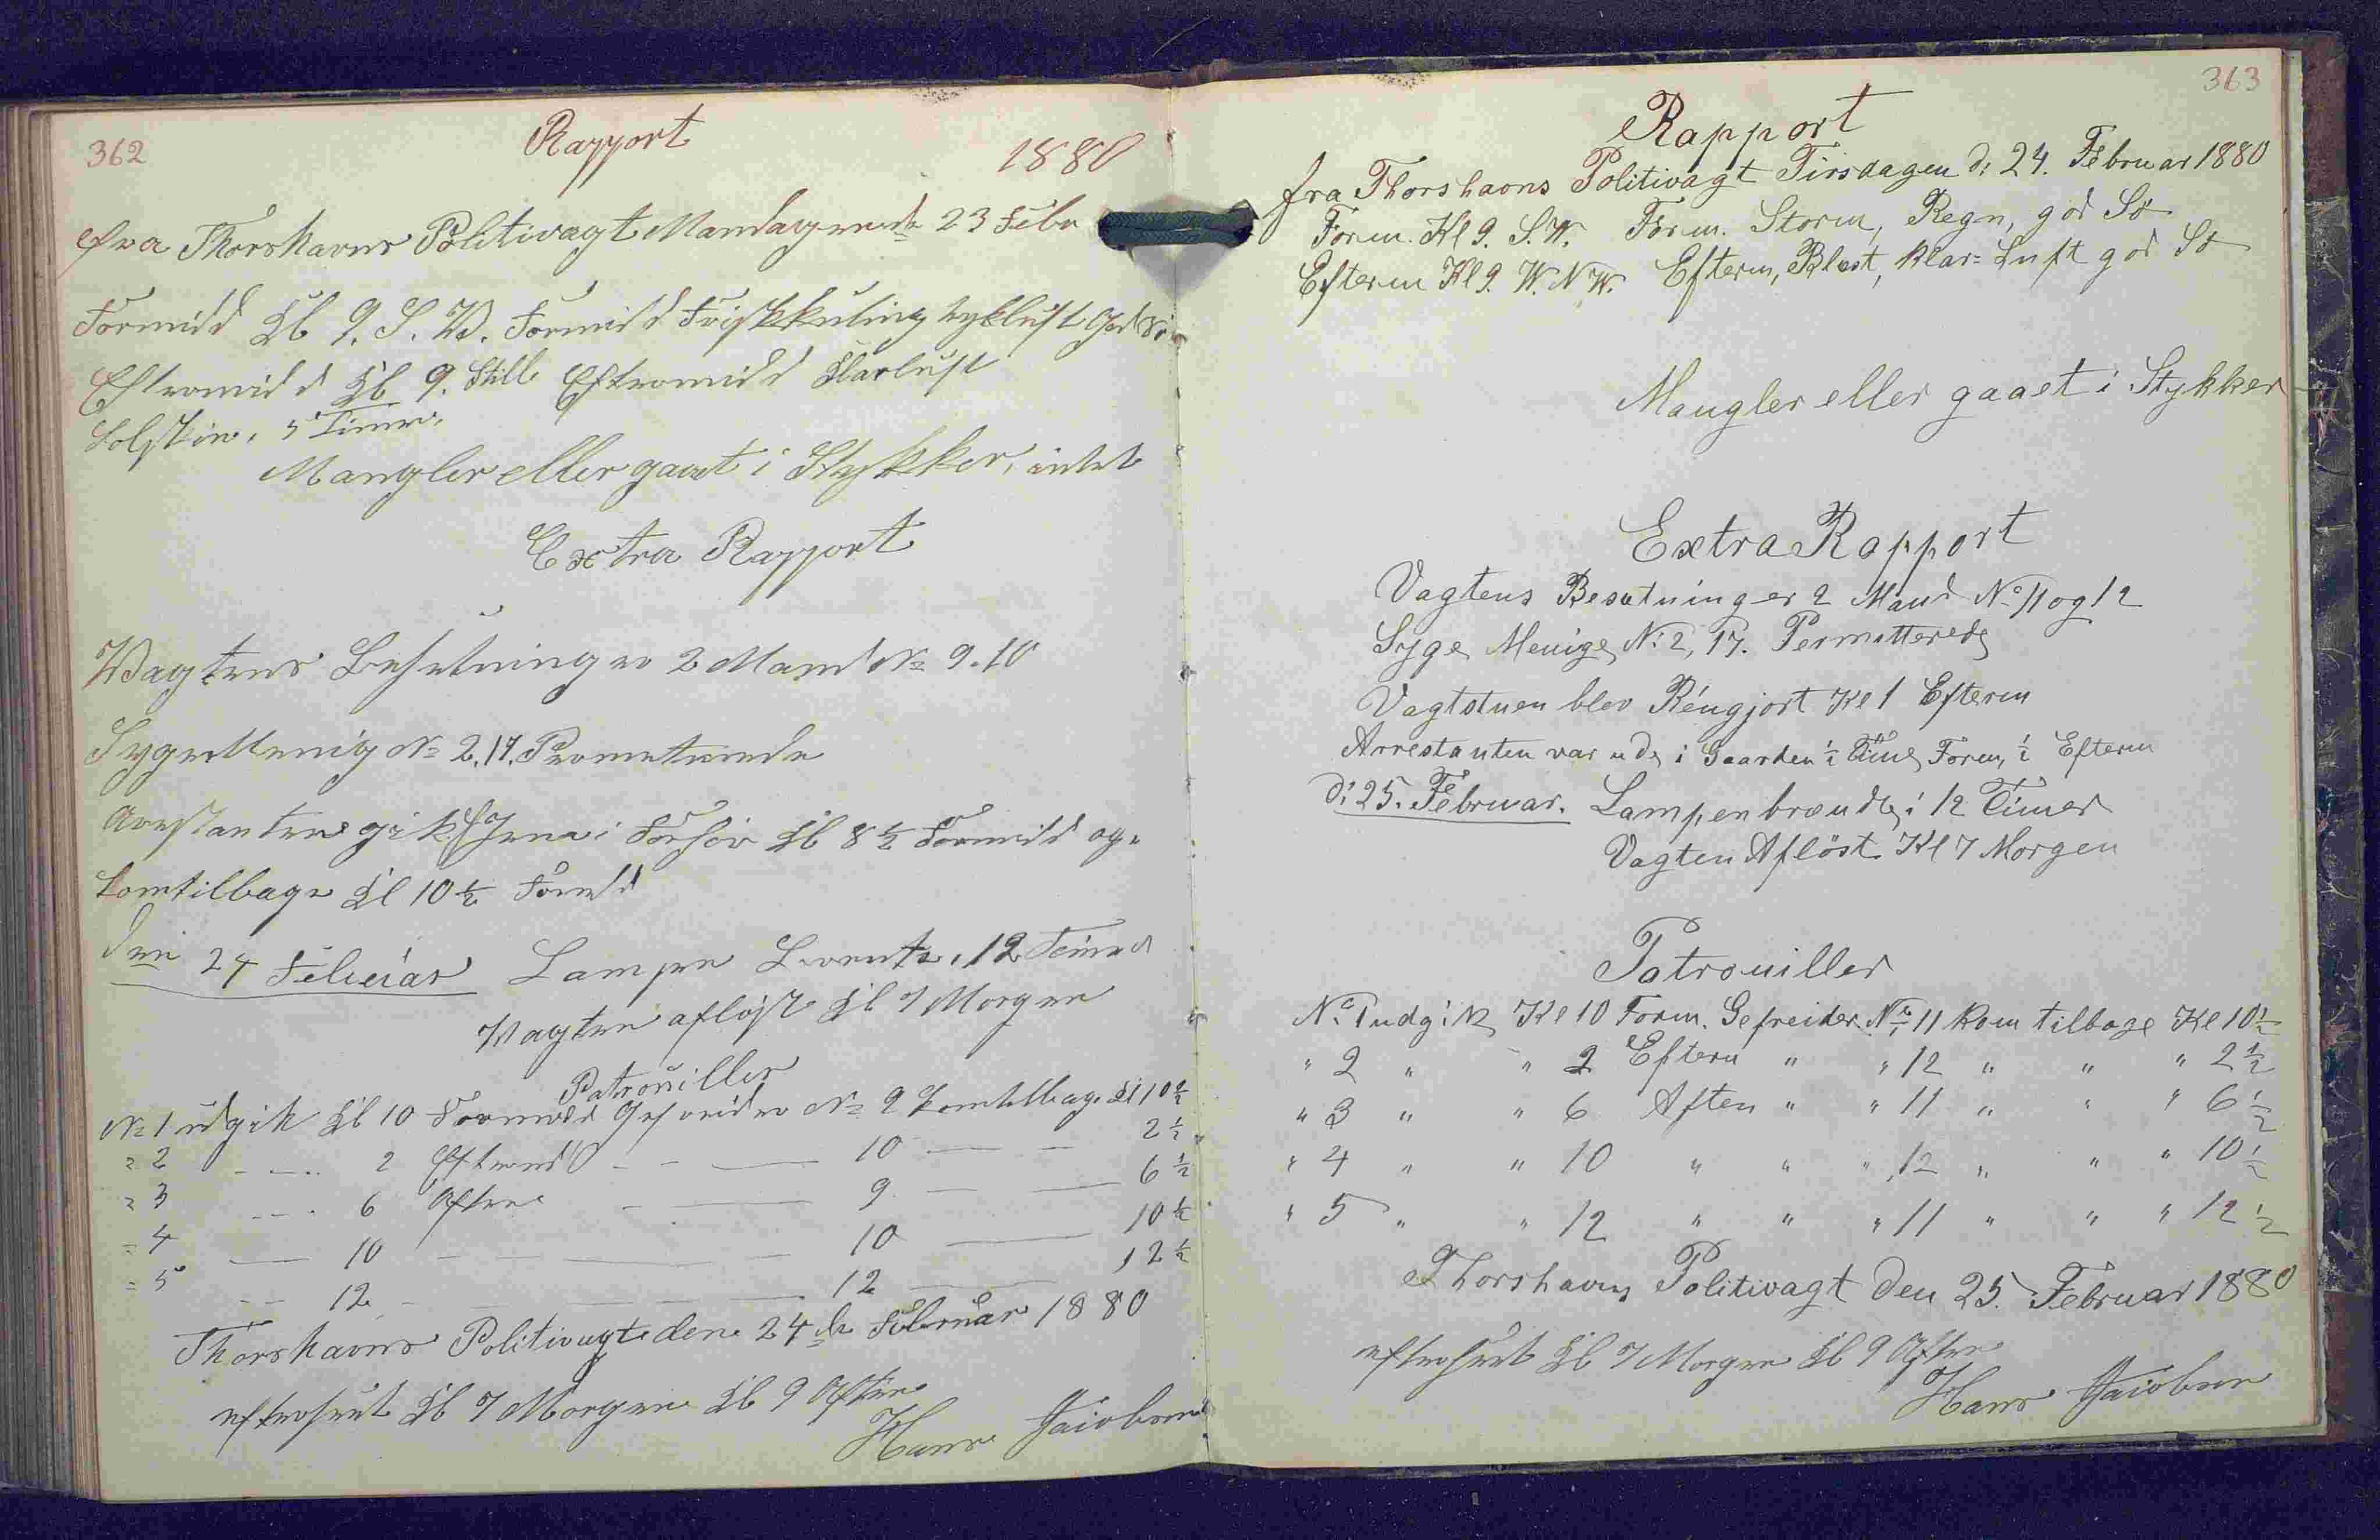 362
Rapport
1880
fra Thorshavns Politivagt Mandagen d 23 Febr
Formidd Kl 9. S. W. Formidd Friskkuling tykluft God Sö
Eftermidd Kl 9. Stille Eftermidd Klarluft
Solskin. 5 Timer.
Mangler eller gaaet i Stykker, intet
Extra Rapport
Wagtens Besetning er 2 Mand No 9. 10
Syge Menig No 2. 17. Permeterede
Arrestanten gik i Forhör Kl 8 ½ Formidd og
kom tilbage Kl 10 ½ Formd
den 24 Februar Lampen Brente, 12 Timer
Wagten aflöst Kl 7 Morgen
Patrouiller
No 1 udgik Kl 10 Formidd Gefreider No 9 kom tilbage Kl 10 ½
" 2 - - - 2 Eftermd - - — 10 — — 2 ½
" 3 - - - 6 Aften - — 9 — — 6 ½
" 4 — 10 - — — 10 — 10 ½
" 5 - - 12 - — — 12 — 12 ½
Thorshavns Politivagt den 24de Februar 1880
efterseet Kl 7 Morgen Kl 9 Aften
Hans Jacobsen
363
Rapport
fra Thorshavns Politivagt Tirsdagen d: 24. Februar 1880
Form. Kl 9. S.W. Form. Storm, Regn, god Sö
Efterm Kl 9. W. N W. Efterm, Blæst, klar= Luft god Sö
Mangler eller gaaet i Stykker
Extra Rapport
Vagtens Besætning er 2 Mand No 11 og 12
Syge, Menige, No 2, 17. Permitterede
Vagtstuen blev Réngjort Kl 1 Efterm
Arrestanten var ude, i Gaarden ½ Time, Form, ½ Efterm
d: 25. Februar. Lampen brændte, i 12 Timer
Vagten Aflöst Kl 7 Morgen
Patrouiller
No 1 udgik Kl 10 Form. Gefreider No 11 kom tilbage Kl 10 ½
" 2 " " 2 Efterm " " 12 " " " 2 ½
" 3 " " 6 Aften " " 11 " " " 6 ½
" 4 " " 10 " " " 12 " " " 10 ½
" 5 " " 12 " " " 11 " " " 12 ½
Thorshavns Politivagt den 25. Februar 1880
efterseet Kl 7 Morgen Kl 9 Aften
Hans Jacobsen